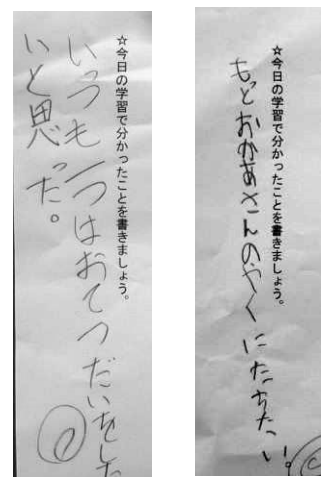 ☆今日の学習で分かったことを書きましょう。
いつも一つはおてつだいをした
いと思った。
☆今日の学習で分かったことを書きましょう。
もっとおかあさんのやくにたちたい。